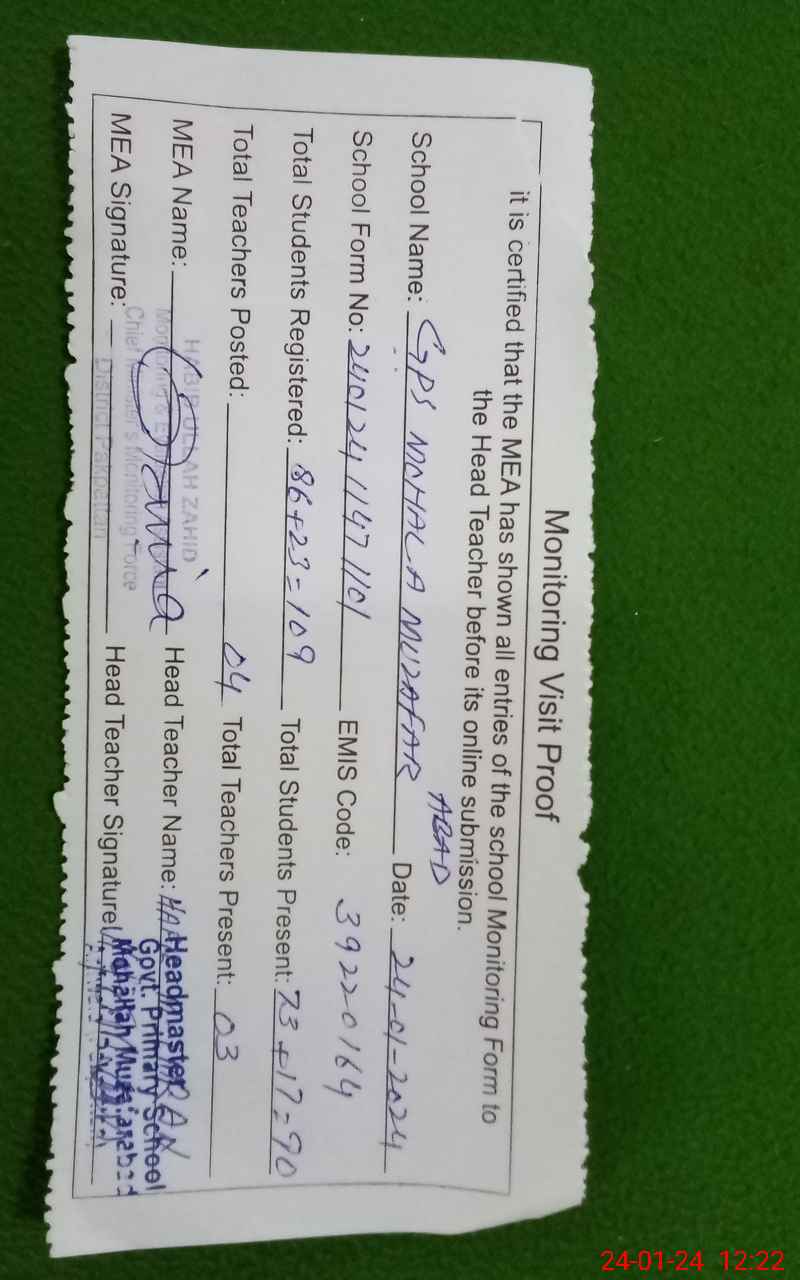 Monitoring Visit Proof
it is certified that the MEA has shown all entries of the school Monitoring Form to
the Head Teacher before its online submission.
School Name: GPS MOHALA MUZAFAR ABAD Date: 24-01-2024
School Form No: 240124 11471101 EMIS Code: 39220164
Total Students Registered: 86+23=109 Total Students Present: 73+17=90
Total Teachers Posted: 04 Total Teachers Present: 03
MEA Name: Head Teacher Name:
MEA Signature: Head Teacher Signature
HABIB ULLAH ZAHID
Monitoring &
Chief Minister's Monitoring Force
District Pakpattan
Headmaster
Govt. Primary School
Mohallah
24-01-24 12:22